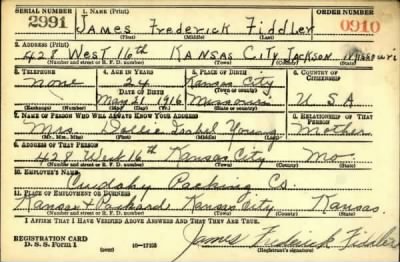 SERIAL NUMBER 1. NAME (Print) ORDER NUMBER
2991 James Frederick Fiddler 0910
(First) (Middle) (Last)
2. ADDRESS (Print)
428 West 16th Kansas City Jackson Missouri
(Number and street or R. F. D. number) (Town) (County) (State)
3. TELEPHONE 4. AGE IN YEARS 5. PLACE OF BIRTH 6. COUNTRY OF CITIZENSHIP
None 24 Kansas City
DATE OF BIRTH (Town or county)
May 21 1916 Missouri U S A
(Exchange) (Number) (Mo.) (Day) (Yr.) (State or country)
7. NAME OF PERSON WHO WILL ALWAYS KNOW YOUR ADDRESS 8. RELATIONSHIP OF THAT PERSON
Mrs. Isabel Young Mother
(Mr., Mrs., Miss) (First) (Middle) (Last)
9. ADDRESS OF THAT PERSON
428 West 16th Kansas City Mo
(Number and street or R. F. D. number) (Town) (County) (State)
10. EMPLOYER'S NAME
Cudahy Packing Co.
11. PLACE OF EMPLOYMENT OR BUSINESS
Kansas & Packard Kansas City Kansas
(Number and street or R. F. D. number) (Town) (County) (State)
I AFFIRM THAT I HAVE VERIFIED ABOVE ANSWERS AND THAT THEY ARE TRUE.
REGISTRATION CARD
D. S. S. Form 1 16-17105 James Fredrick Fiddler
(Registrant's signature)